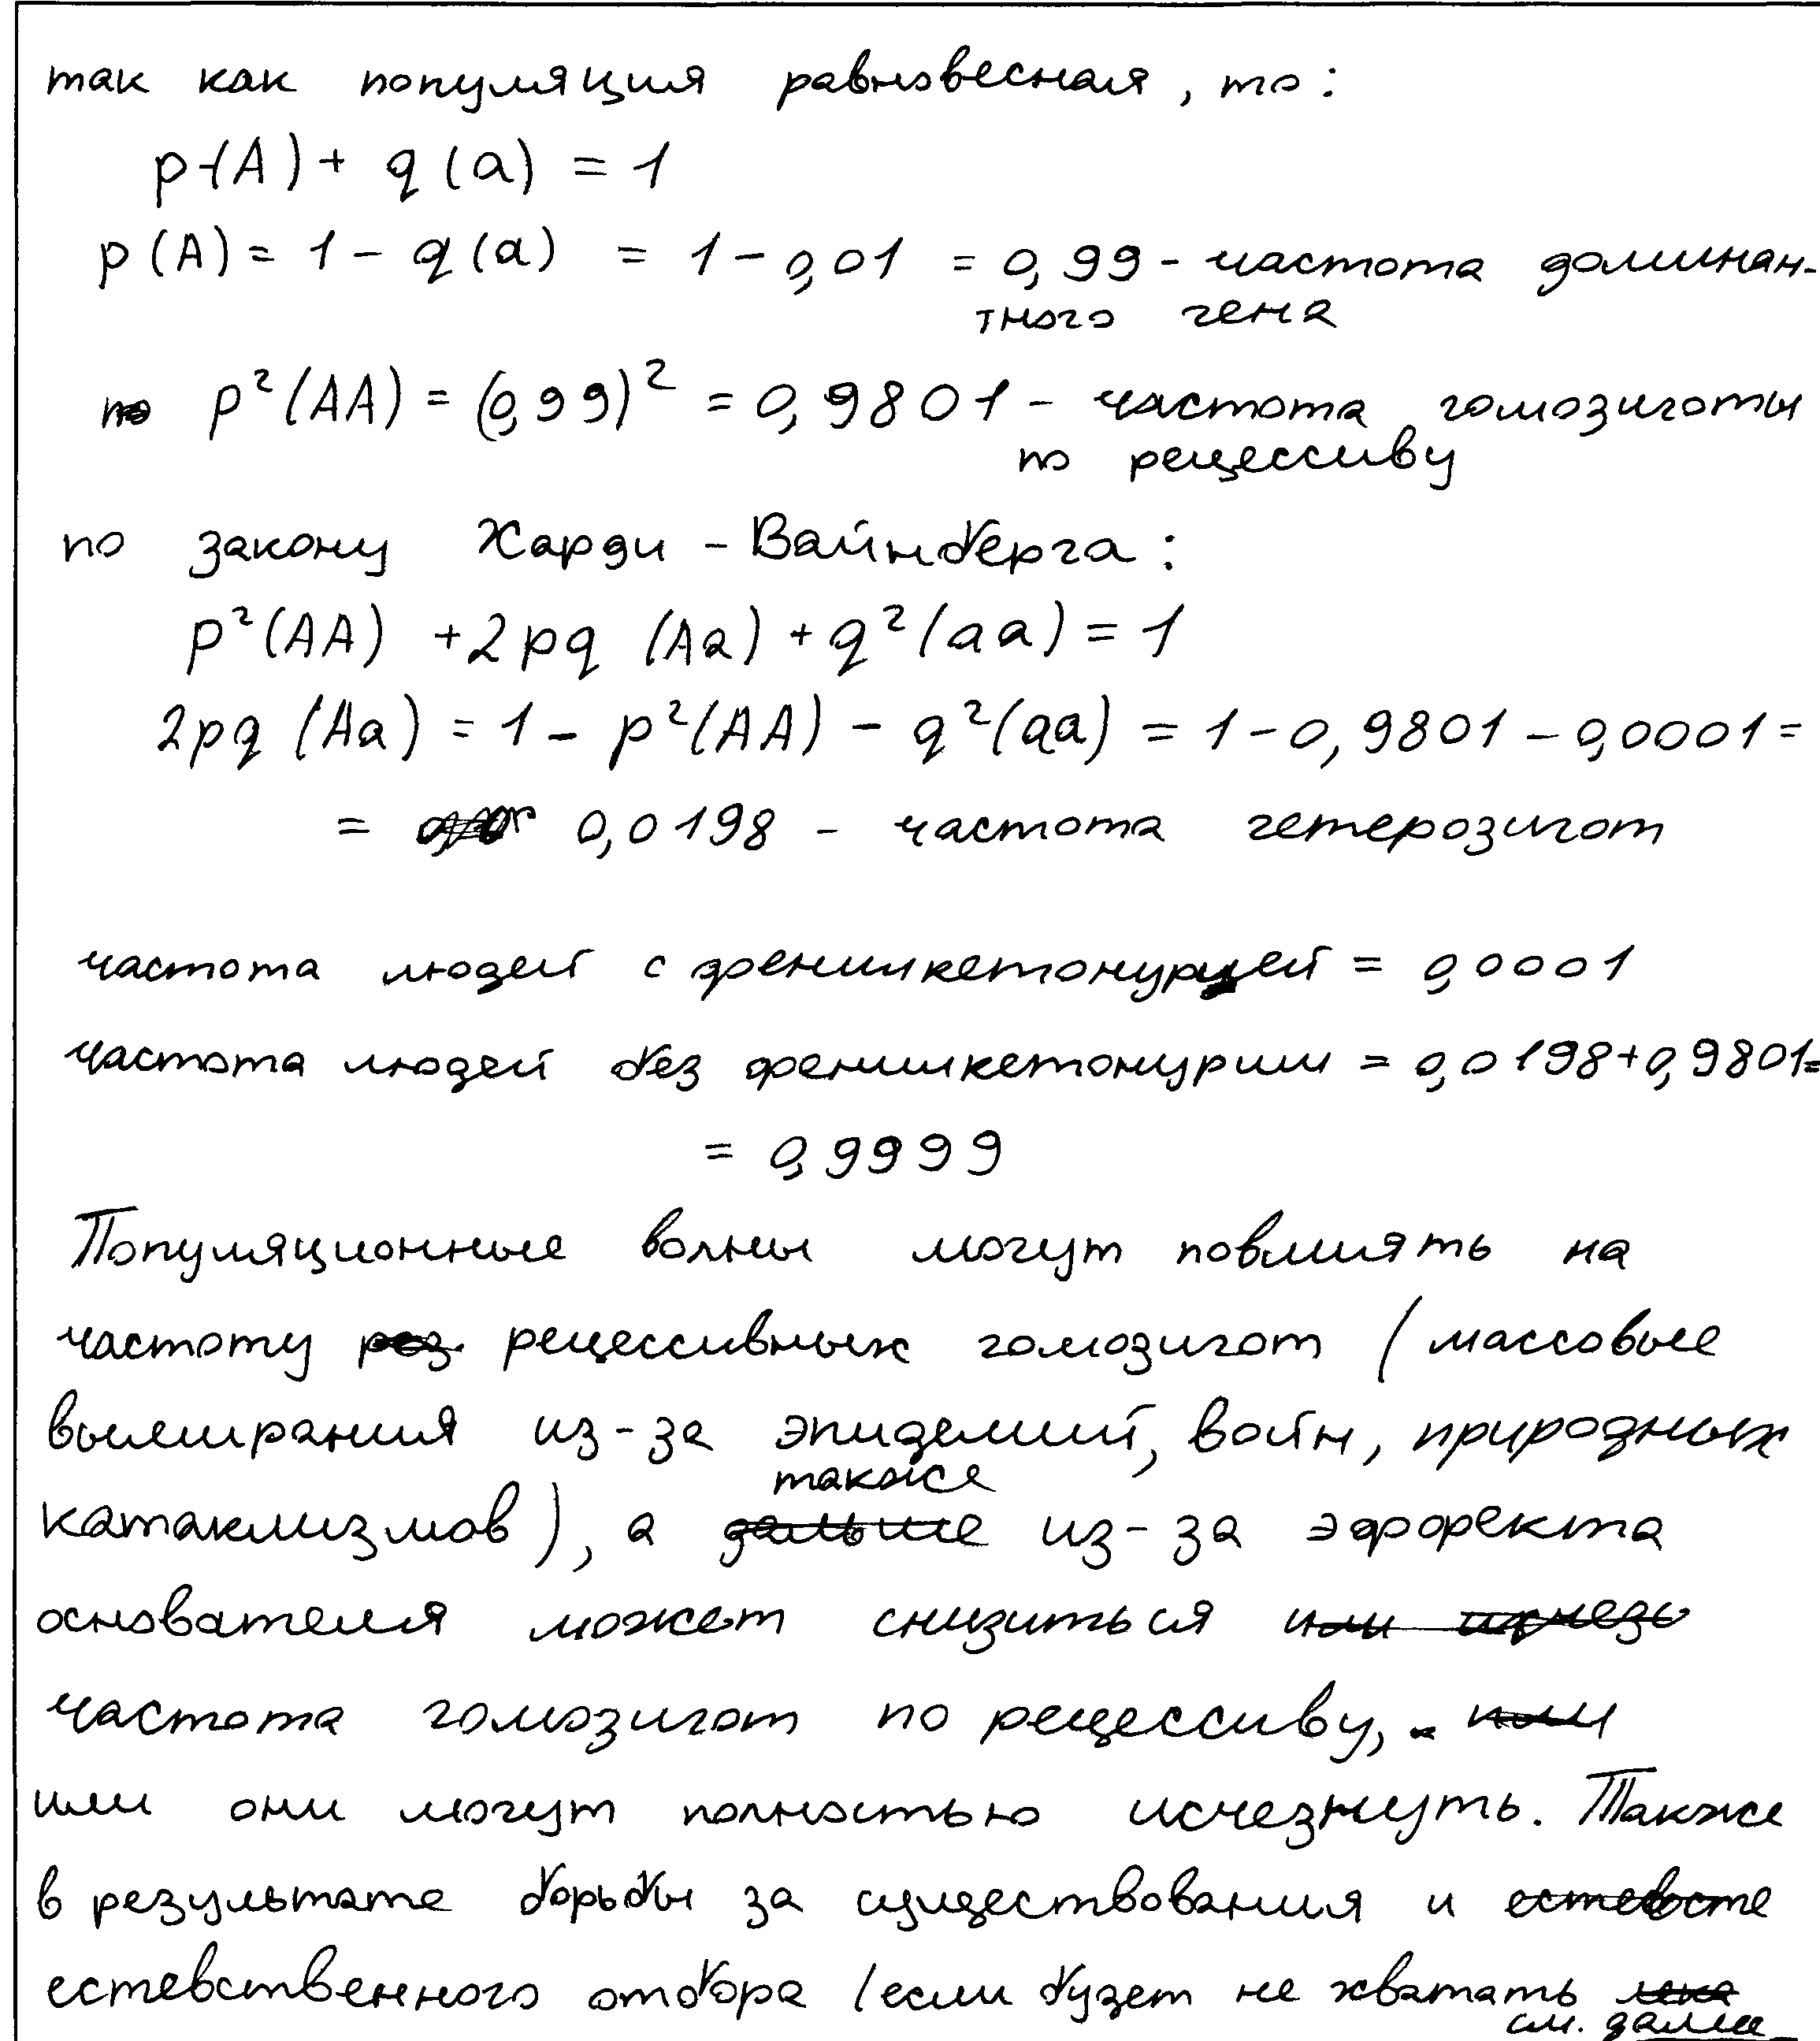 так как популяция равновесная, то:
p(A) + q(a) = 1
p(A) = 1 - q(a) = 1 - 0,01 = 0,99 - частота доминан-
тного гена
по p²(AA) = (0,99)² = 0,9801 - частота гомозиготы
по рецессиву
по закону Харди - Вайнберга:
p²(AA) + 2pq (Aa) + q²(aa) = 1
2pq (Aa) = 1 - p²(AA) - q²(aa) = 1 - 0,9801 - 0,0001 =
= 0,0198 - частота гетерозигот
частота людей с фенилкетонурией = 0,0001
частота людей без фенилкетонурии = 0,0198 + 0,9801 =
= 0,9999
Популяционные волны могут повлиять на
частоту рез рецессивных гомозигот (массовые
вымирания из-за эпидемий, войн, природных
также
катаклизмов), а дальше из-за эффекта
основателя может снизиться или исчезо
частота гомозигот по рецессиву, или
или они могут полностью исчезнуть. Также
в результате борьбы за существования и естевсте
естевственного отбора (если будет не хватать лека
см. далее